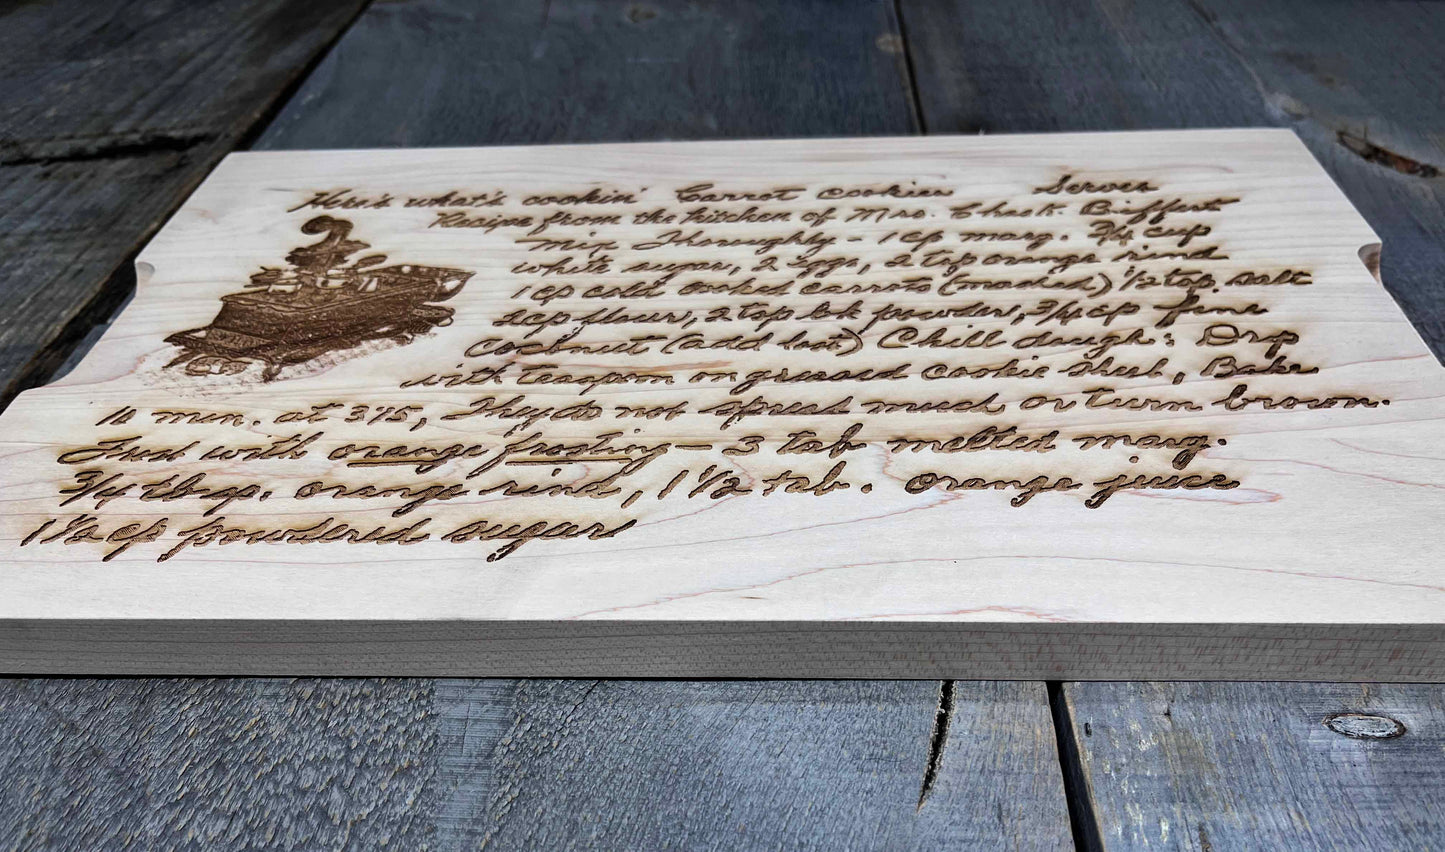 Here's what's cookin' Carrot cookies Serves
Recipe from the kitchen of Mrs. Chas. K. Bieffert
Mix Thoroughly - 1 cp marg. 3/4 cup
white sugar, 2 eggs, 2 tsp orange rind
1 cp cold cooked carrots (mashed) 1/2 tsp. salt
2 cp flour, 2 tsp bk powder, 3/4 cp fine
coconut (add last) Chill dough: Drop
with teaspoon on greased cookie sheet, Bake
min. at 375, They do not spread much or turn brown.
with orange frosting - 3 tab melted marg.
3/4 tbsp. orange rind, 1 1/2 tab. orange juice
1 1/2 cp powdered sugar